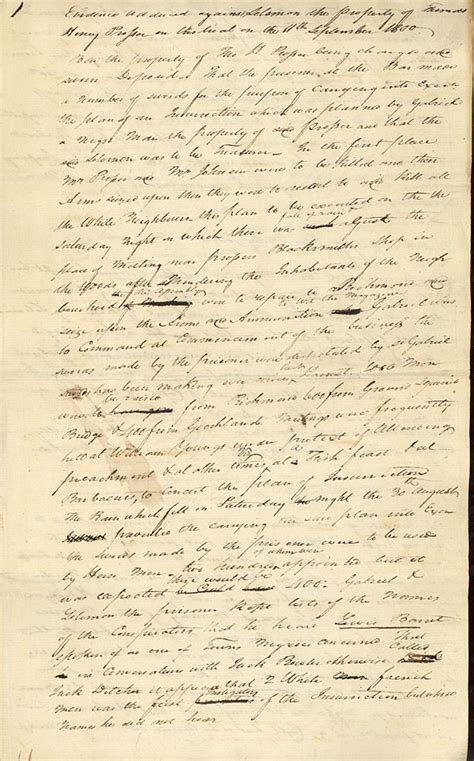 1
Evidence adduced against Solomon the property of Thomas
Henry Prosser on his trial on the 11th September 1800
Ben the property of Tho H Prosser being charged and
sworn Deposed That the prisoner at the Bar made
a number of swords for the purpose of carrying into Execn
the plan of an Insurrection which was planned by Gabriel
a Negro Man the property of said Prosser and that the
said Solomon was to be Treasurer In the first place
Mr Prosser and Mr Johnson were to be killed and their
Arms seized upon then they were to resort to and Kill all
the White Neighbours this plan to be executed on the
Saturday night on which there was
fall of rain
the
place of Meeting near prossers Blacksmiths Shop in
the Woods after Murdering the Inhabitants of the Neigh
bourhood
were to repair to Richmond and
seize upon the Arms and Ammunition
the Magazine
Gabriel was
to Command at Commencement of the business the
swords made by the prisoner were distributed by sd Gabriel
has been making ever since
harvest 1000 Men
were to
be raised
from Richmond 600 from Ground Squirrel
Bridge & 400 from Goochland Meetings were frequently
held at William Youngs under pretext of Attending
preachment & at other times at
Fish feast & at
Barbacues, to concert the plan of Insurrection
The Rain which fell on Saturday night the 30th August
prevented the carrying the said plan into Exen
the swords made by the prisoner were to be used
by Horse Men two hundred
of whom were
appointed but it
was expected
there would be
400. Gabriel &
Solomon the prisoner kept lists of the Names
of the Conspirators that he heard Lewis Barret
spoken of as one of Towns Negroes concerned That
in conversation with Jack Bowler otherwise
Called
Jack Ditcher it appeared that 2 White
french
Men was the first
instigators
of the Insurrection but whose
Names he did not hear